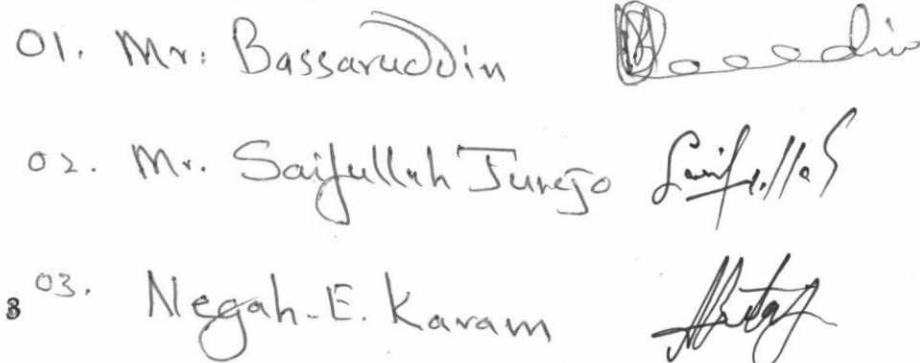 01. Mr: Bassaruddin
02. Mr. Saifullah Junejo Saifullah
3 03. Negah-E. Karam